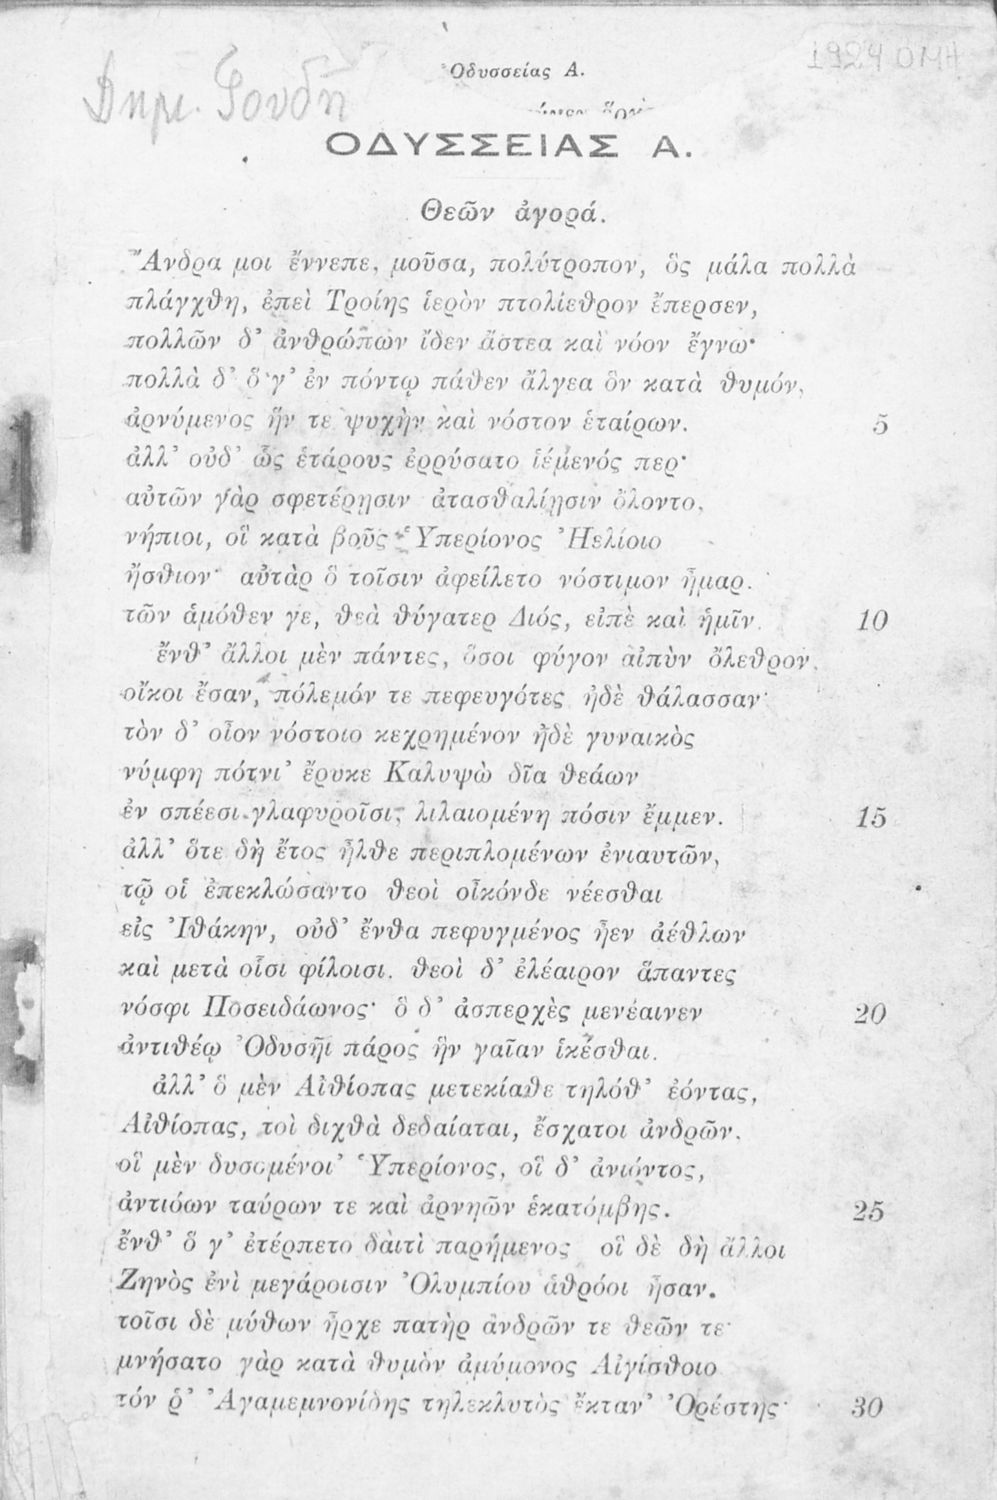 1924 ΟΜΗ
Ὀδυσσείας Α.
Δημ. Γουδῆ
ΟΔΥΣΣΕΙΑΣ Α.
Θεῶν ἀγορά.
Ἄνδρα μοι ἔννεπε, μοῦσα, πολύτροπον, ὃς μάλα πολλὰ
πλάγχθη, ἐπεὶ Τροίης ἱερὸν πτολίεθρον ἔπερσεν,
πολλῶν δ’ ἀνθρώπων ἴδεν ἄστεα καὶ νόον ἔγνω·
πολλὰ δ’ ὅ γ’ ἐν πόντῳ πάθεν ἄλγεα ὃν κατὰ θυμόν,
ἀρνύμενος ἥν τε ψυχὴν καὶ νόστον ἑταίρων. 5
ἀλλ’ οὐδ’ ὧς ἑτάρους ἐρρύσατο ἱέμενός περ·
αὐτῶν γὰρ σφετέρῃσιν ἀτασθαλίῃσιν ὄλοντο,
νήπιοι, οἳ κατὰ βοῦς Ὑπερίονος Ἠελίοιο
ἤσθιον· αὐτὰρ ὃ τοῖσιν ἀφείλετο νόστιμον ἦμαρ.
τῶν ἁμόθεν γε, θεὰ θύγατερ Διός, εἰπὲ καὶ ἡμῖν. 10
ἔνθ’ ἄλλοι μὲν πάντες, ὅσοι φύγον αἰπὺν ὄλεθρον,
οἴκοι ἔσαν, πόλεμόν τε πεφευγότες ἠδὲ θάλασσαν·
τὸν δ’ οἶον νόστοιο κεχρημένον ἠδὲ γυναικὸς
νύμφη πότνι’ ἔρυκε Καλυψὼ δῖα θεάων
ἐν σπέεσι γλαφυροῖσι, λιλαιομένη πόσιν ἔμμεν. 15
ἀλλ’ ὅτε δὴ ἔτος ἦλθε περιπλομένων ἐνιαυτῶν,
τῷ οἱ ἐπεκλώσαντο θεοὶ οἶκόνδε νέεσθαι
εἰς Ἰθάκην, οὐδ’ ἔνθα πεφυγμένος ἦεν ἀέθλων
καὶ μετὰ οἷσι φίλοισι. θεοὶ δ’ ἐλέαιρον ἅπαντες
νόσφι Ποσειδάωνος· ὃ δ’ ἀσπερχὲς μενέαινεν 20
ἀντιθέῳ Ὀδυσῆι πάρος ἣν γαῖαν ἱκέσθαι.
ἀλλ’ ὃ μὲν Αἰθίοπας μετεκίαθε τηλόθ’ ἐόντας,
Αἰθίοπας, τοὶ διχθὰ δεδαίαται, ἔσχατοι ἀνδρῶν,
οἳ μὲν δυσομένοι’ Ὑπερίονος, οἳ δ’ ἀνιόντος,
ἀντιόων ταύρων τε καὶ ἀρνηῶν ἑκατόμβης. 25
ἔνθ’ ὅ γ’ ἐτέρπετο δαιτὶ παρήμενος οἳ δὲ δὴ ἄλλοι
Ζηνὸς ἐνὶ μεγάροισιν Ὀλυμπίου ἁθρόοι ἦσαν.
τοῖσι δὲ μύθων ἦρχε πατὴρ ἀνδρῶν τε θεῶν τε·
μνήσατο γὰρ κατὰ θυμὸν ἀμύμονος Αἰγίσθοιο
τόν ῥ’ Ἀγαμεμνονίδης τηλεκλυτὸς ἔκταν’ Ὀρέστης· 30